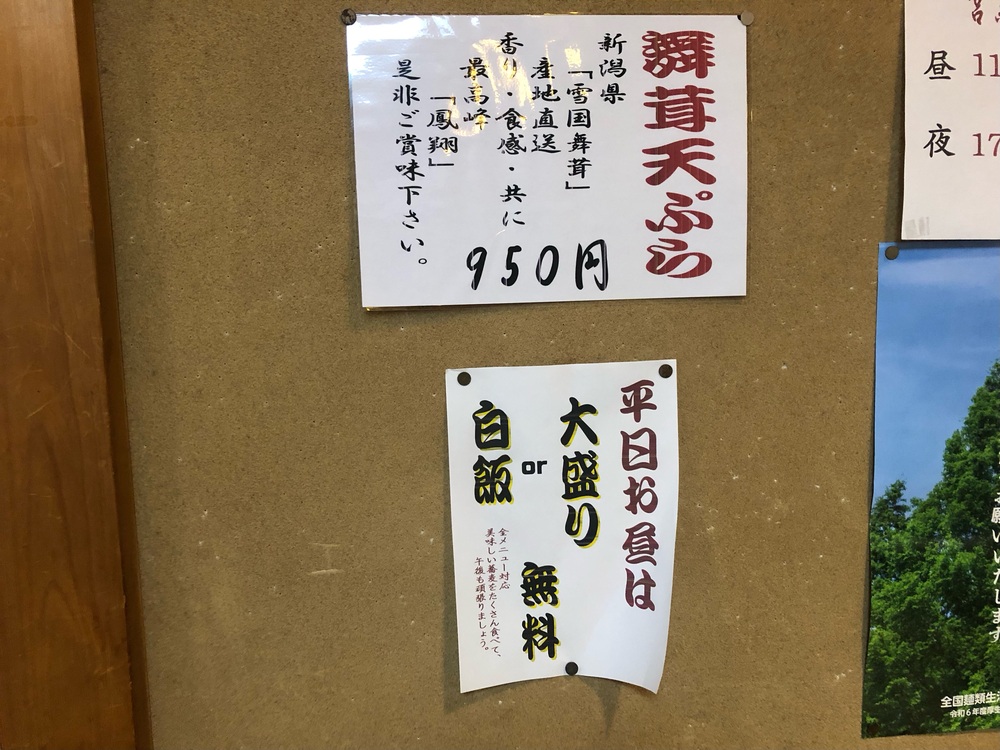 舞茸天ぷら
新潟県
「雪国舞茸」
産地直送
香り・食感・共に
最高峰
「鳳翔」
是非ご賞味下さい。
950円
平日お昼は
大盛り
or
白飯
無料
全メニュー対応
美味しい蕎麦をたくさん食べて、
午後も頑張りましょう。
昼 11
夜 17
願いいたします
全国麺類生活
令和6年度厚生